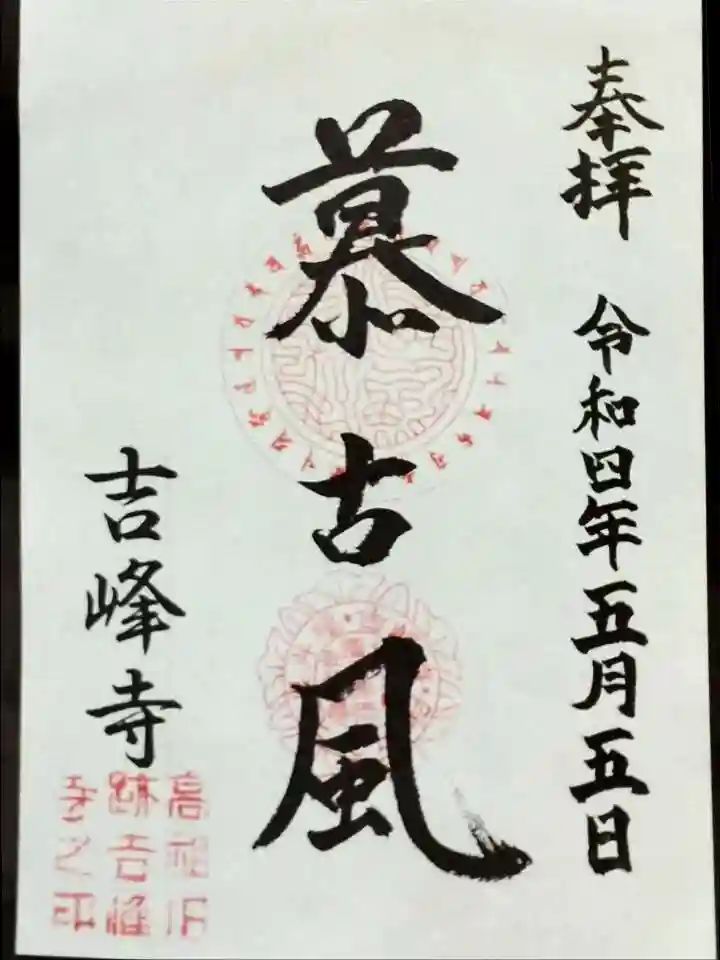 奉拝 令和四年五月五日
慕古風
吉峰寺
高祖旧
跡吉峰
寺之印